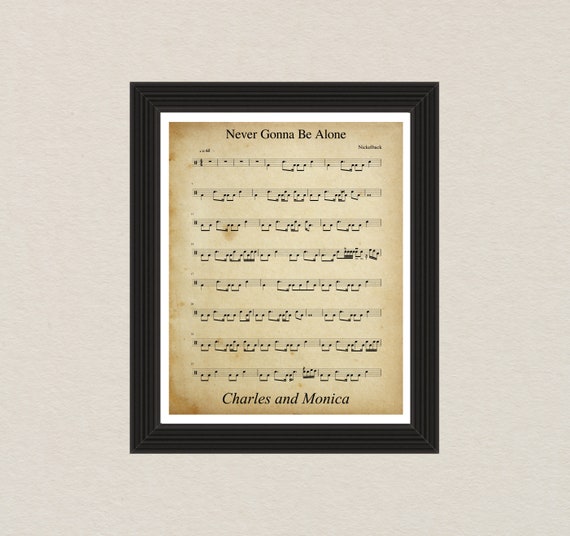 Never Gonna Be Alone
Nickelback
Charles and Monica